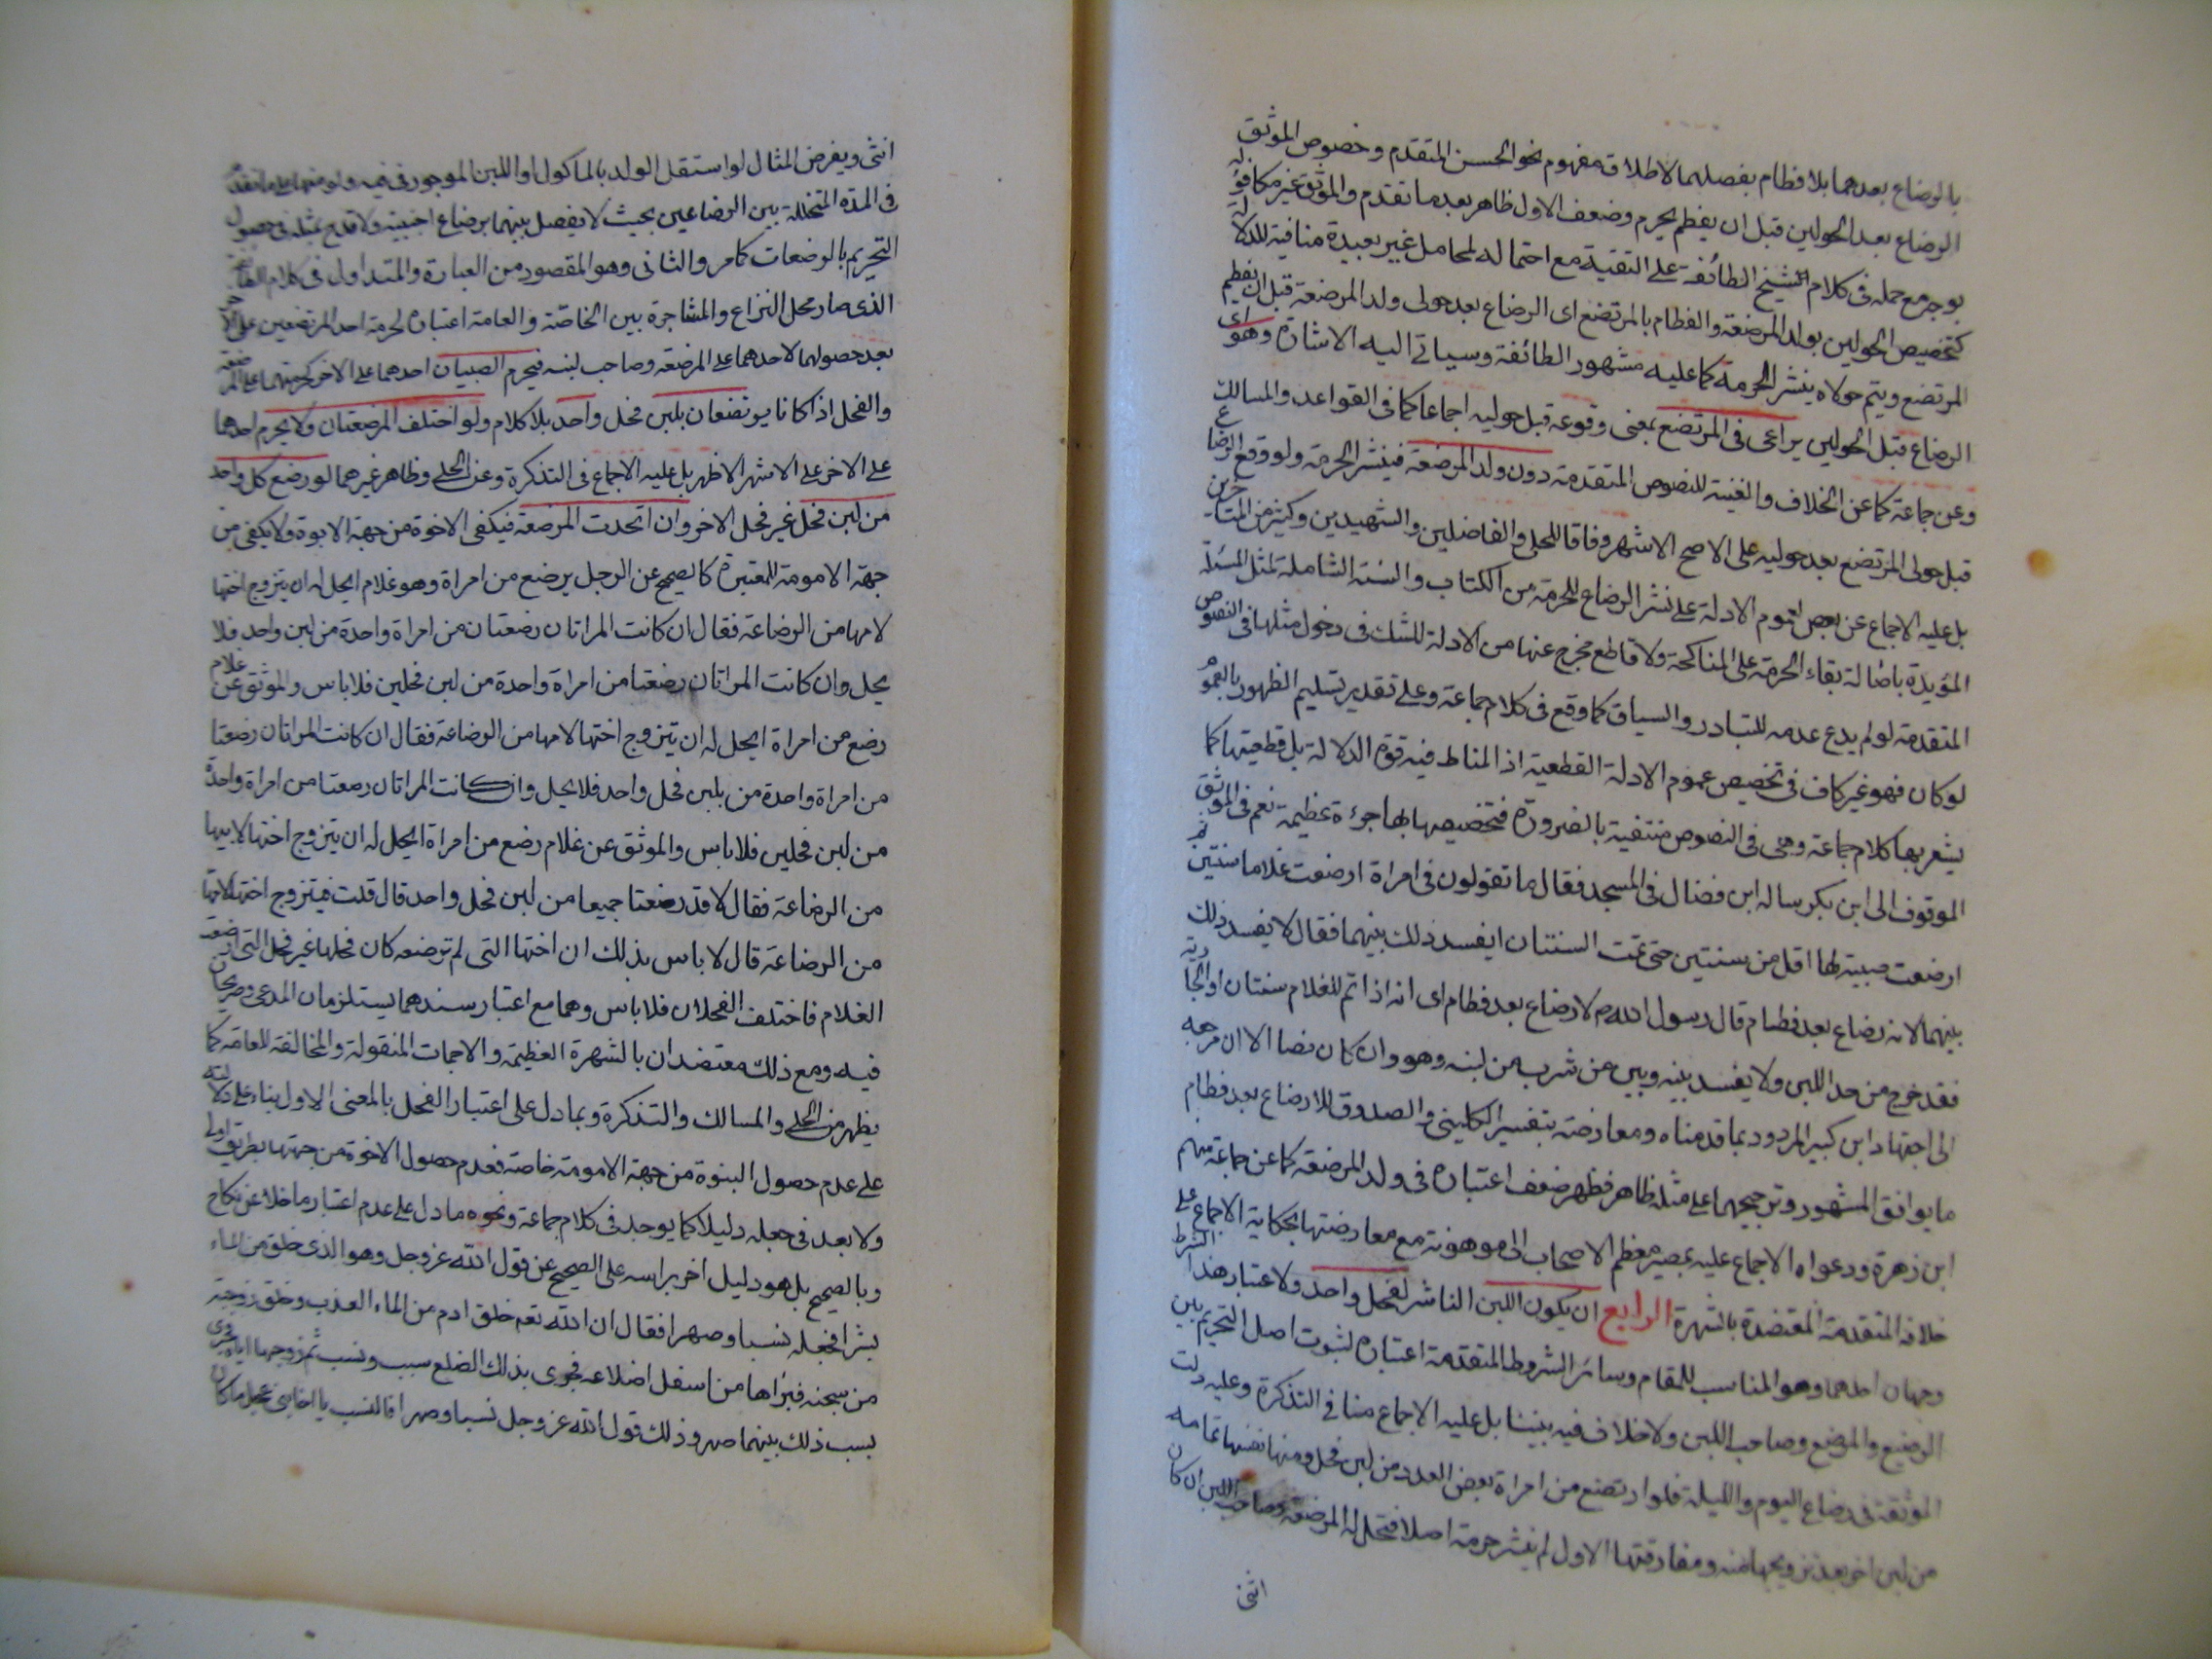 بالرضاع بعدهما بلا فطام بفصلهما لاطلاق مفهوم نحو الحسن المتقدم وخصوص الموثق
الرضاع بعد الحولين قبل ان يفطم يحرم وضعف الاول ظاهر بعد ما تقدم والموثق غير مكافؤ له
بوجه مع حمله فى كلام الشيخ الطائفة على التقية مع احتماله لمحامل غير بعيدة منافية للدلالة
كتخصيص الحولين بولد المرضعة والفطام بالمرتضع اى الرضاع بعد حولى ولد المرضعة قبل ان يفطم
المرتضع ويتم حولاه ينشر الحرمة كما عليه مشهور الطائفة وسياتى اليه الاشارة وهو اى
الرضاع قبل الحولين يراعى فى المرتضع بمعنى وقوعه قبل حوليه اجماعا كما فى القواعد والمسالك
وعن جماعة كما عن الخلاف والغنية للنصوص المتقدمة دون ولد المرضعة فينشر الحرمة ولو وقع الرضاع
قبل حولى المرتضع بعد حوليه على الاصح الاشهر وفاقا للحلى والفاضلين والشهيدين وكثير من المتاخرين
بل عليه الاجماع عن بعض لعموم الادلة على نشر الرضاع للحرمة من الكتاب والسنة الشاملة لمثل المسئلة
المؤيدة باصالة بقاء الحرمة على المناكحة ولا قاطع مخرج عنها من الادلة للشك فى دخول مثلها فى النصوص
المتقدمة لو لم يدع عدمه للتبادر والسياق كما وقع فى كلام جماعة وعلى تقدير تسليم الظهور بالعموم
لو كان فهو غير كاف فى تخصيص عموم الادلة القطعية اذ المناط فيه قوة الدلالة بل قطعيتها كما
يشعر بها كلام جماعة وهى فى النصوص منتفية بالضرورة فتخصيصها بها جرءة عظيمة نعم فى الموثق
الموقوف الى ابن بكير ساله ابن فضال فى المسجد فقال ما تقولون فى امراة ارضعت غلاما سنتين ثم
ارضعت صبية لها اقل من سنتين حتى تمت السنتان ايفسد ذلك بينهما فقال لا يفسد ذلك
بينهما لانه رضاع بعد فطام قال رسول الله ص لا رضاع بعد فطام اى انه اذا تم للغلام سنتان او الجارية
فقد خرج من حد اللبن ولا يفسد بينه وبين من شرب من لبنه وهو وان كان نصا الا ان مرجعه
الى اجتهاد ابن كبير المردود بما قدمناه ومعارضته بتفسير الكلينى والصدوق للارضاع بعد فطام
ما يوافق المشهور وترجيحهما على مثله ظاهر فظهر ضعف اعتباره فى ولد المرضعة كما عن جماعة منهم
ابن زهرة ودعواه الاجماع عليه بمصير معظم الاصحاب الى موهونة مع معارضتها بحكاية الاجماع على
خلافه المتقدمة المعتضدة بالشهرة الرابع ان يكون اللبن الناشر لفحل واحد ولاعتبار هذا الشرط
وجهان احدهما وهو المناسب للمقام وسائر الشروط المتقدمة اعتباره لثبوت اصل التحريم بين
الرضيع والمرضع وصاحب اللبن ولا خلاف فيه بيننا بل عليه الاجماع منا فى التذكرة وعليه دلت
الموثقة فى رضاع اليوم والليلة فلو ارتضع من امراة بعض العدد من لبن فحل ومنها نفسها تمامه
من لبن اخر بعد تزويجها منه ومفارقتها الاول لم ينشر حرمة اصلا فتحل له المرضعة وصاحب اللبن ان كان
انثى
انثى ويفرض المثال لو استقل الولد بالماكول او اللبن الموجور فى فمه
فى المدة المتخللة بين الرضاعين بحيث لا يفصل بينهما برضاع اجنبية ولا قدح بمثله فى حصول
التحريم بالرضعات كما مر والثانى وهو المقصود من العبارة والمتداول فى كلام
الذى صار محل النزاع والمشاجرة بين الخاصة والعامة اعتباره لحرمة احد المرتضعين على الاخر
بعد حصولهما لاحدهما على المرضعة وصاحب لبنه فيحرم الصبيان احدهما على الاخر كحرمتهما على المرضعة
والفحل اذا كانا يرتضعان بلبن فحل واحد بلا كلام ولو اختلف المرضعتان ولا يحرم احدهما
على الاخر على الاشهر الاظهر بل عليه الاجماع فى التذكرة وعن الحلى وظاهر غيرهما لو رضع كل واحد
من لبن فحل غير فحل الاخر وان اتحدت المرضعة فيكفى الاخوة من جهة الابوة ولا يكفى من
جهة الامومة للمعتبرة كالصحيح عن الرجل يرضع من امراة وهو غلام ايحل له ان يتزوج اختها
لامها من الرضاعة فقال ان كانت المراتان رضعتان من امراة واحدة من لبن واحد فلا
يحل وان كانت المراتان رضعتا من امراة واحدة من لبن فحلين فلا باس والموثق عن غلام
رضع من امراة ايحل له ان يتزوج اختها لامها من الرضاعة فقال ان كانت المراتان رضعتا
من امراة واحدة من بلبن فحل واحد فلا يحل وان كانت المراتان رضعتا من امراة واحدة
من لبن فحلين فلا باس والموثق عن غلام رضع من امراة ايحل له ان يتزوج اختها لابيها
من الرضاعة فقال لا قد رضعتا جميعا من لبن فحل واحد قال قلت فيتزوج اختها لامها
من الرضاعة قال لا باس بذلك ان اختها التى لم ترضعه كان فحلها غير فحل التى ارضعت
الغلام فاختلف الفحلان فلا باس وهما مع اعتبار سندهما يستلزمان المدعى وصريحان
فيه ومع ذلك معتضدان بالشهرة العظيمة والاجماعات المنقولة والمخالفة للعامة كما
يظهر من الحلى والمسالك والتذكرة وبما دل على اعتبار الفحل بالمعنى الاول بناء على دلالته
على عدم حصول البنوة من جهة الامومة خاصة فعدم حصول الاخوة من جهتها بطريق اولى
ولا بعد فى جعله دليلا كما يوجد فى كلام جماعة ونحوه ما دل على عدم اعتبار ما خلا عن نكاح
وبالصحيح بل هو دليل اخر براسه على الصحيح عن قول الله عز وجل وهو الذى خلق من الماء
بشرا فجعله نسبا وصهرا فقال ان الله تعم خلق ادم من الماء العذب وخلق زوجته
من سجنه فبراها من اسفل اضلاعه فجرى بذلك الضلع سبب ونسب ثم زوجها اياه فجرى
بسبب ذلك بينهما صهر وذلك قول الله عز وجل نسبا وصهرا فالنسب يا اخا بنى عجل ما كان